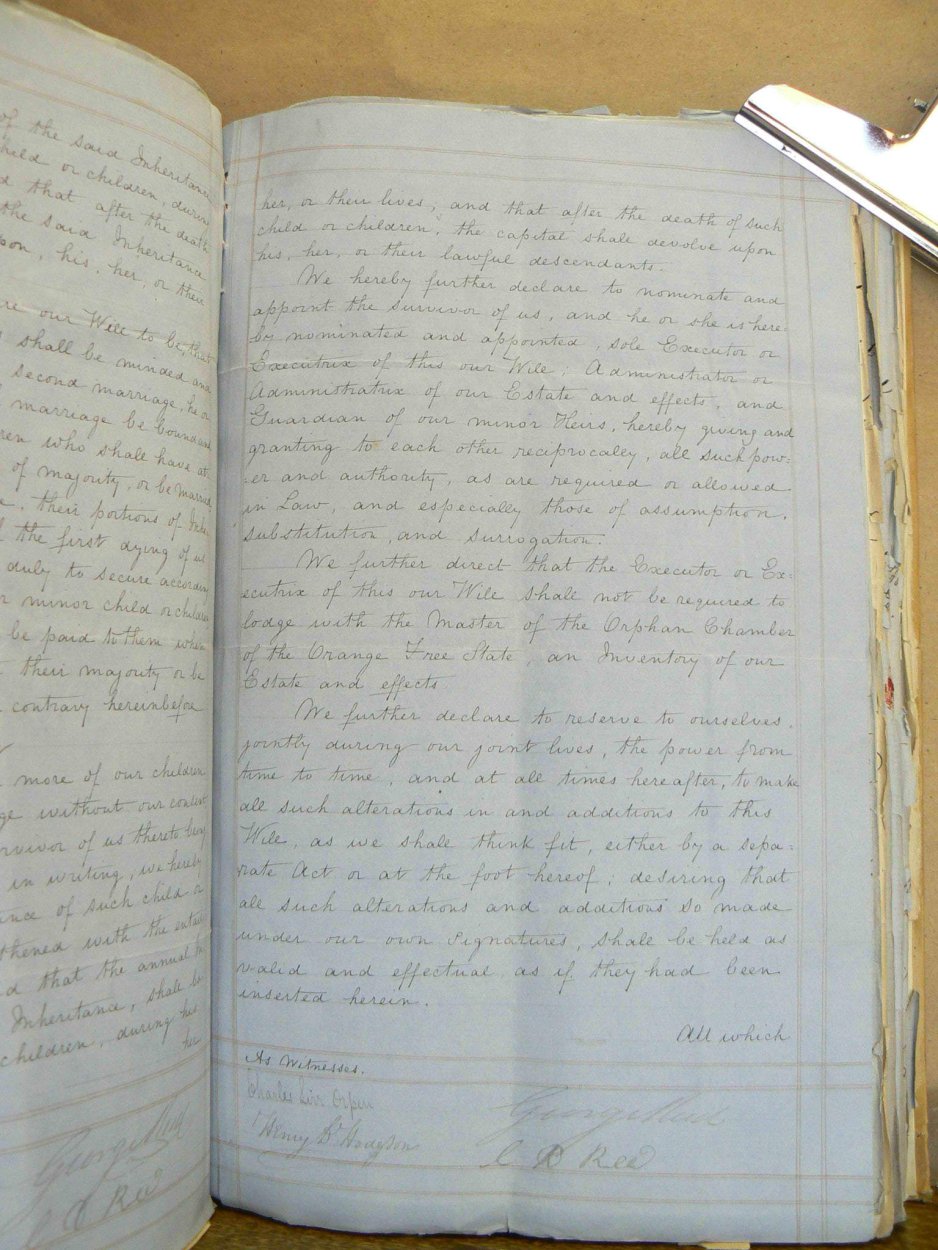 of the said Inheritance
child or children, during
d that after the death
the said Inheritance
pon, his, her, or their
re our Will to be, that
shall be minded and
second marriage, he or
marriage be bound and
ren who shall have at-
of majority, or be married
their portions of Inhe
the first dying of us
duly to secure according
r minor child or children
be paid to them when
their majority or be
contrary hereinbefore
more of our children
ge without our consent
rvivor of us thereto being
in writing, we hereby
ance of such child or
thened with the entail
d that the annual
Inheritance, shall be
children, during his
her
C D Reed
her, or their lives; and that after the death of such
child or children, the capital shall devolve upon
his, her, or their lawful descendants.
We hereby further declare to nominate and
appoint the survivor of us, and he or she is here=
by nominated and appointed, sole Executor or
Executrix of this our Will; Administrator or
Administratrix of our Estate and effects, and
Guardian of our minor Heirs, hereby giving and
granting to each other reciprocally, all such pow=
=er and authority, as are required or allowed
in Law, and especially those of assumption,
substitution, and surrogation.
We further direct that the Executor or Ex=
ecutrix of this our Will shall not be required to
lodge with the Master of the Orphan Chamber
of the Orange Free State, an Inventory of our
Estate and effects
We further declare to reserve to ourselves,
jointly during our joint lives, the power from
time to time, and at all times hereafter, to make
all such alterations in and additions to this
Will, as we shall think fit, either by a sepa=
rate Act or at the foot hereof; desiring that
all such alterations and additions so made
under our own signatures, shall be held as
valid and effectual as if they had been
inserted herein.
All which
As Witnesses.
Charles Orpen
Henry Hodgson
George
C D Reed